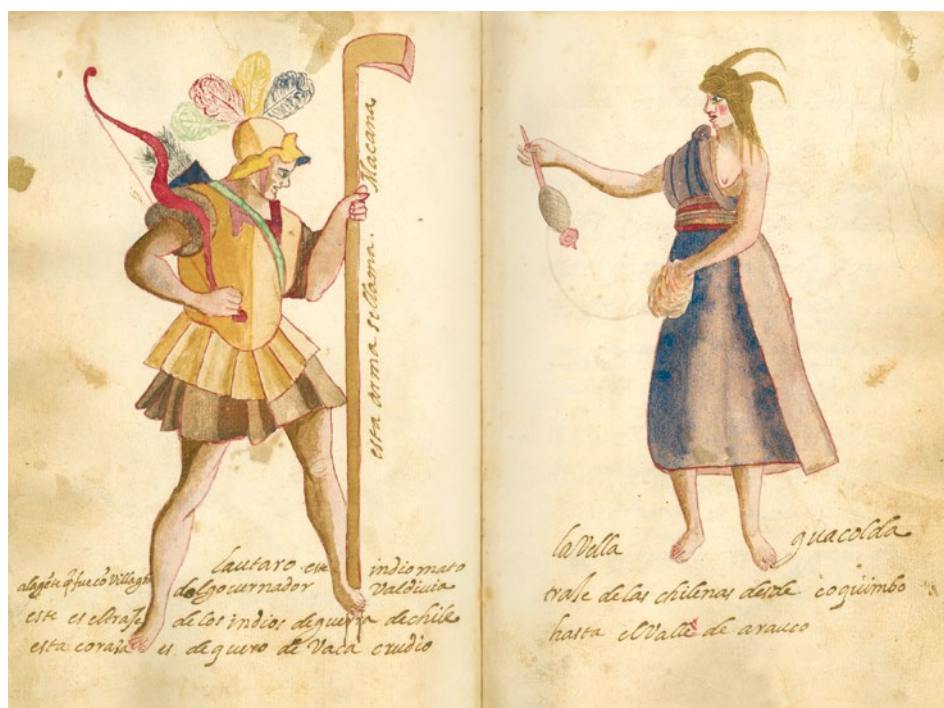 esta arma sellama. Macana
lautaro este indio mato
alagẽte q̃ fue cõ Villagrã del governador Valdivia
este es el traje de los indios de guerra de chile
esta coraza es de quero de Vaca crudio
la Vella guacolda
traje de las chilenas desde coquimbo
hasta el Valle de arauco